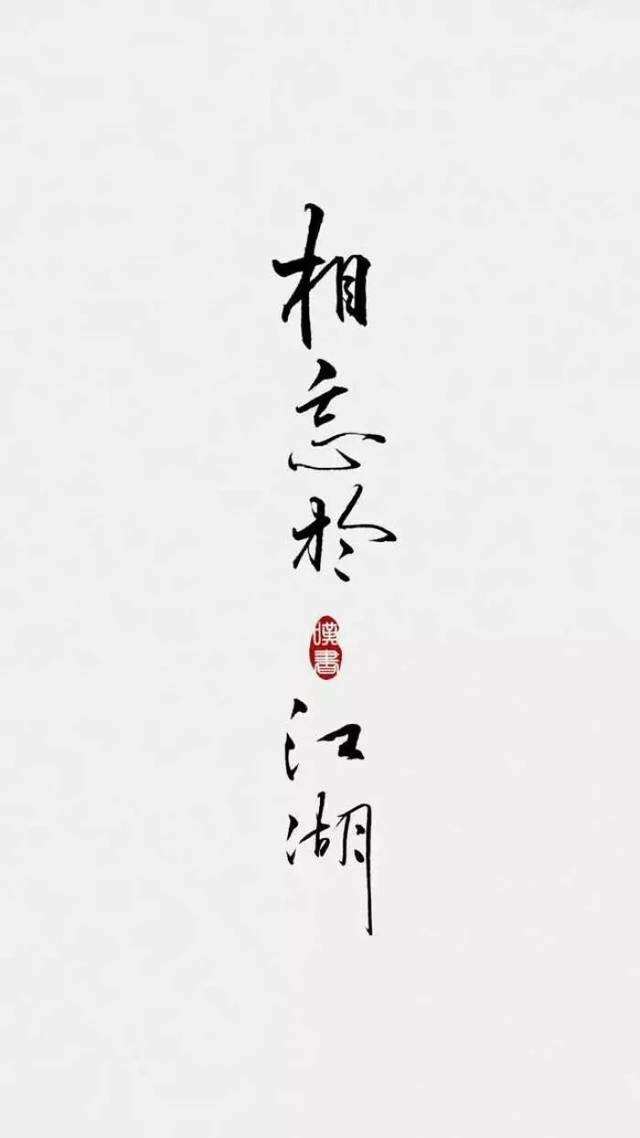 相忘於
嘆書
江湖